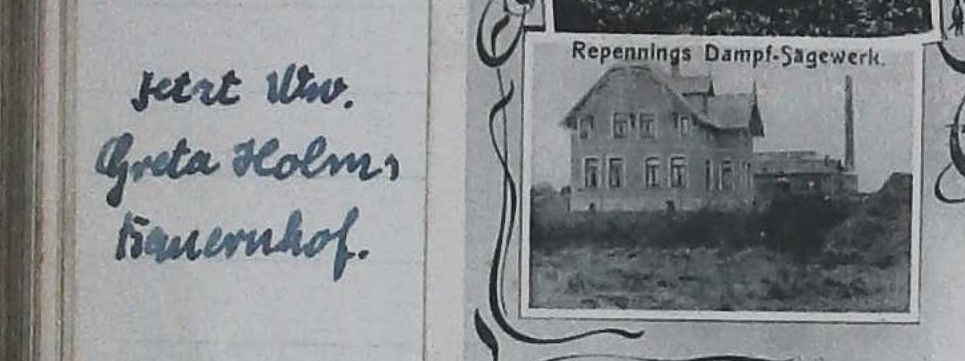 Jetzt Ww.
Greta Holm,
Bauernhof.
Repennings Dampf-Sägewerk.